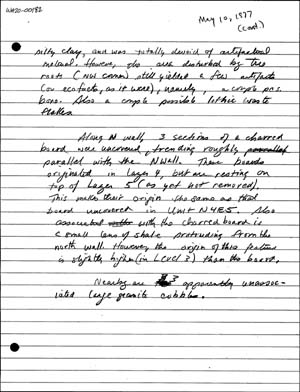 WH20-00192
May 10, 1977
(cont.)
silty clay, and was totally devoid of artifactual
material. However, the area disturbed by tree
roots (NW corner) still yielded a few artifacts
(or ecofacts, as it were), namely, a couple pcs.
bone. Also a couple possible lithic waste
flakes.
Along N wall, 3 sections of a charred
board were uncovered, trending roughly parallel
parallel with the N wall. These boards
originated in Layer 4, but are resting on
top of Layer 5 (as yet not removed).
This makes their origin the same as that
board uncovered in Unit N4E5. Also
associated with the charred board is
a small lens of shale protruding from the
north wall. However, the origin of this feature
is slightly higher (in Level 3) than the board.
Nearby are 3 apparently unassoc-
iated large granite cobbles.